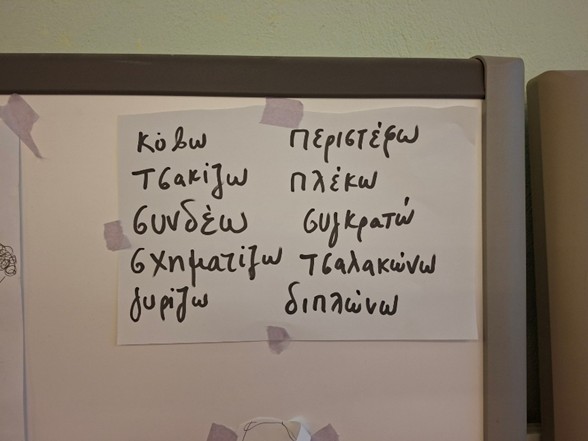 κόβω περιστέφω
τσακίζω πλέκω
συνδέω συγκρατώ
σχηματίζω τσαλακώνω
γυρίζω διπλώνω